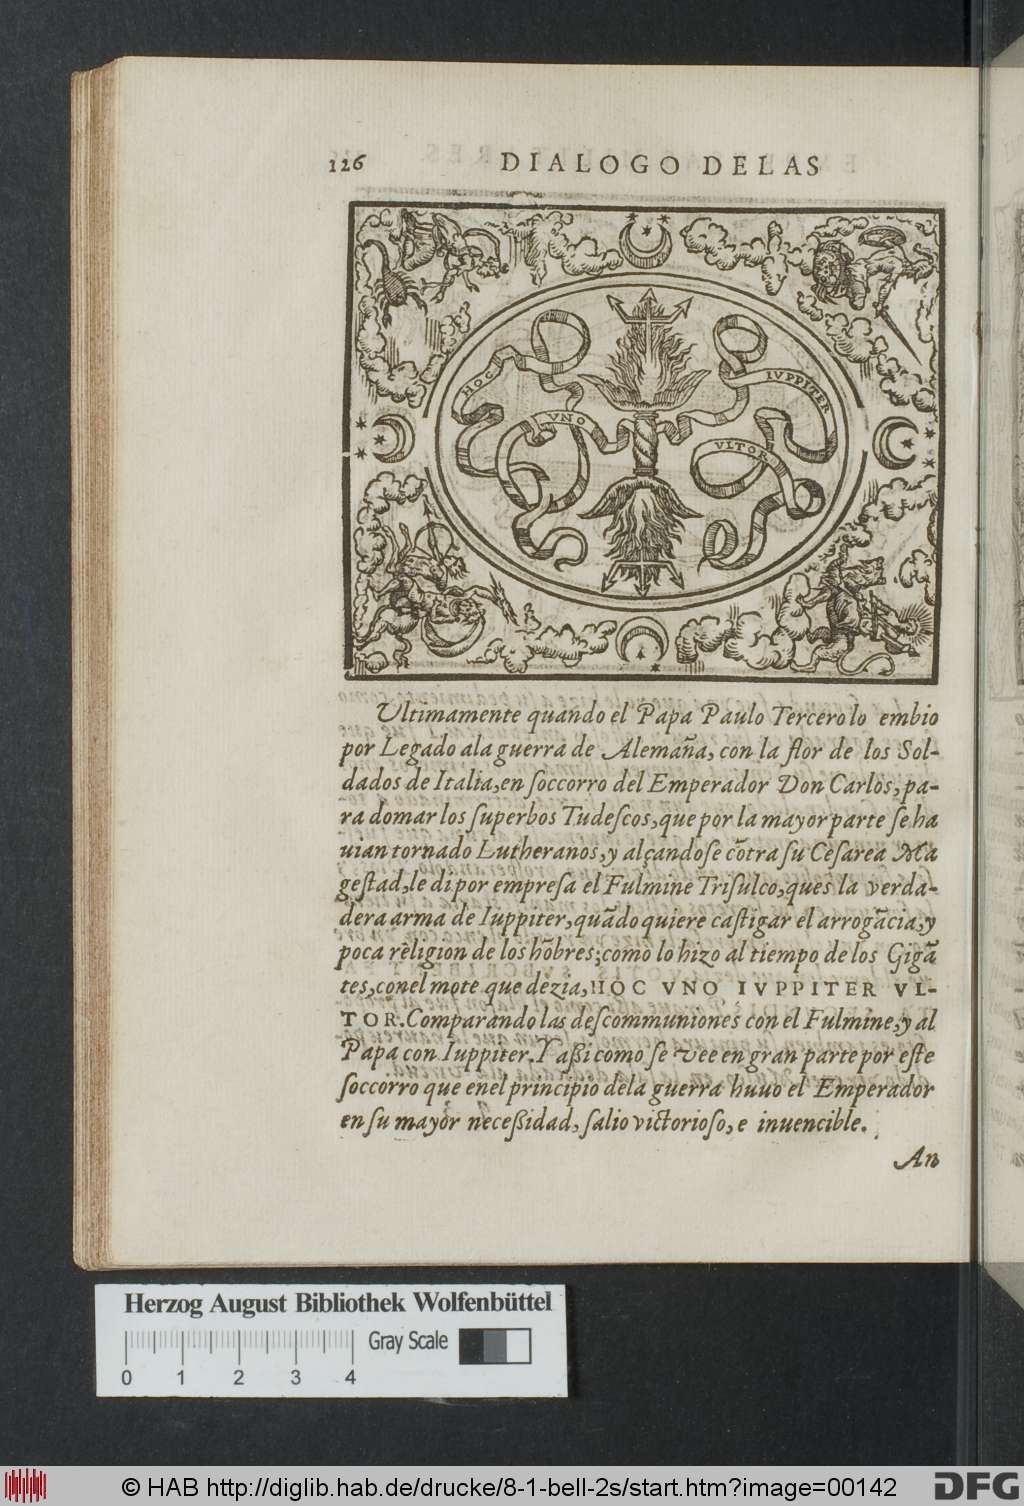 126 DIALOGO DE LAS
HOC
VNO
IVPPITER
VLTOR
Vltimamente quando el Papa Paulo Tercero lo embio
por Legado ala guerra de Alemãna, con la flor de los Sol-
dados de Italia, en ſoccorro del Emperador Don Carlos, pa-
ra domar los ſuperbos Tudeſcos, que por la mayor parte ſe ha
uian tornado Lutheranos, y alçandoſe cõtra ſu Ceſarea Ma
geſtad, le di por empreſa el Fulmine Triſulco, ques la verda-
dera arma de Iuppiter, quãdo quiere caſtigar el arrogãcia, y
poca rèligion de los hõbres; como lo hizo al tiempo de los Gigã
tes, con el mote que dezia, HOC VNO IVPPITER VL-
TOR. Comparando las deſcommuniones con el Fulmine, y al
Papa con Iuppiter. Y aßi como ſe vee en gran parte por eſte
ſoccorro que en el principio dela guerra huuo el Emperador
en ſu mayor neceßidad, ſalio victorioſo, e inuencible.
An
Herzog August Bibliothek Wolfenbüttel
Gray Scale
0 1 2 3 4
© HAB http://diglib.hab.de/drucke/8-1-bell-2s/start.htm?image=00142
DFG